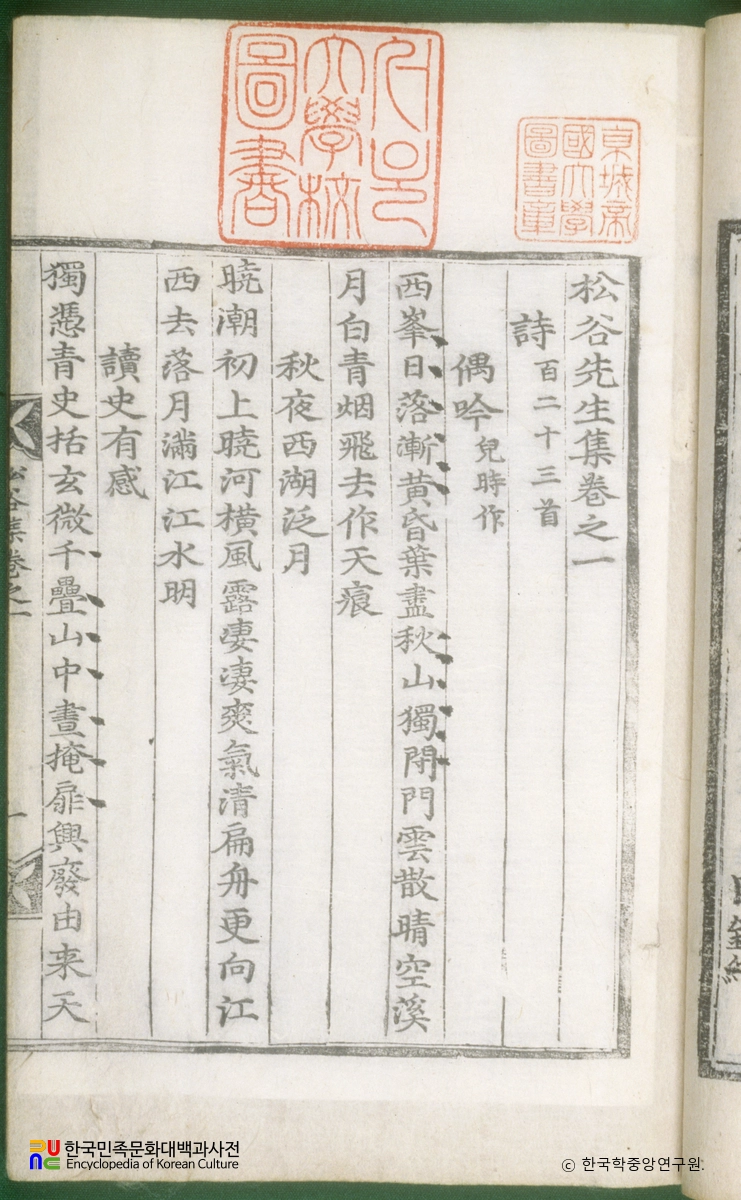 松谷先生集卷之一
詩 百二十三首
偶吟 兒時作
西峯日落漸黃昏葉盡秋山獨閉門雲散晴空溪
月白青烟飛去作天痕
秋夜西湖泛月
曉潮初上曉河橫風露凄凄爽氣清扁舟更向江
西去落月滿江江水明
讀史有感
獨憑青史括玄微千疊山中晝掩扉興廢由来天
松谷集卷之一
一
京城帝
國大學
圖書章
大學校
圖書
한국민족문화대백과사전
Encyclopedia of Korean Culture
© 한국학중앙연구원.